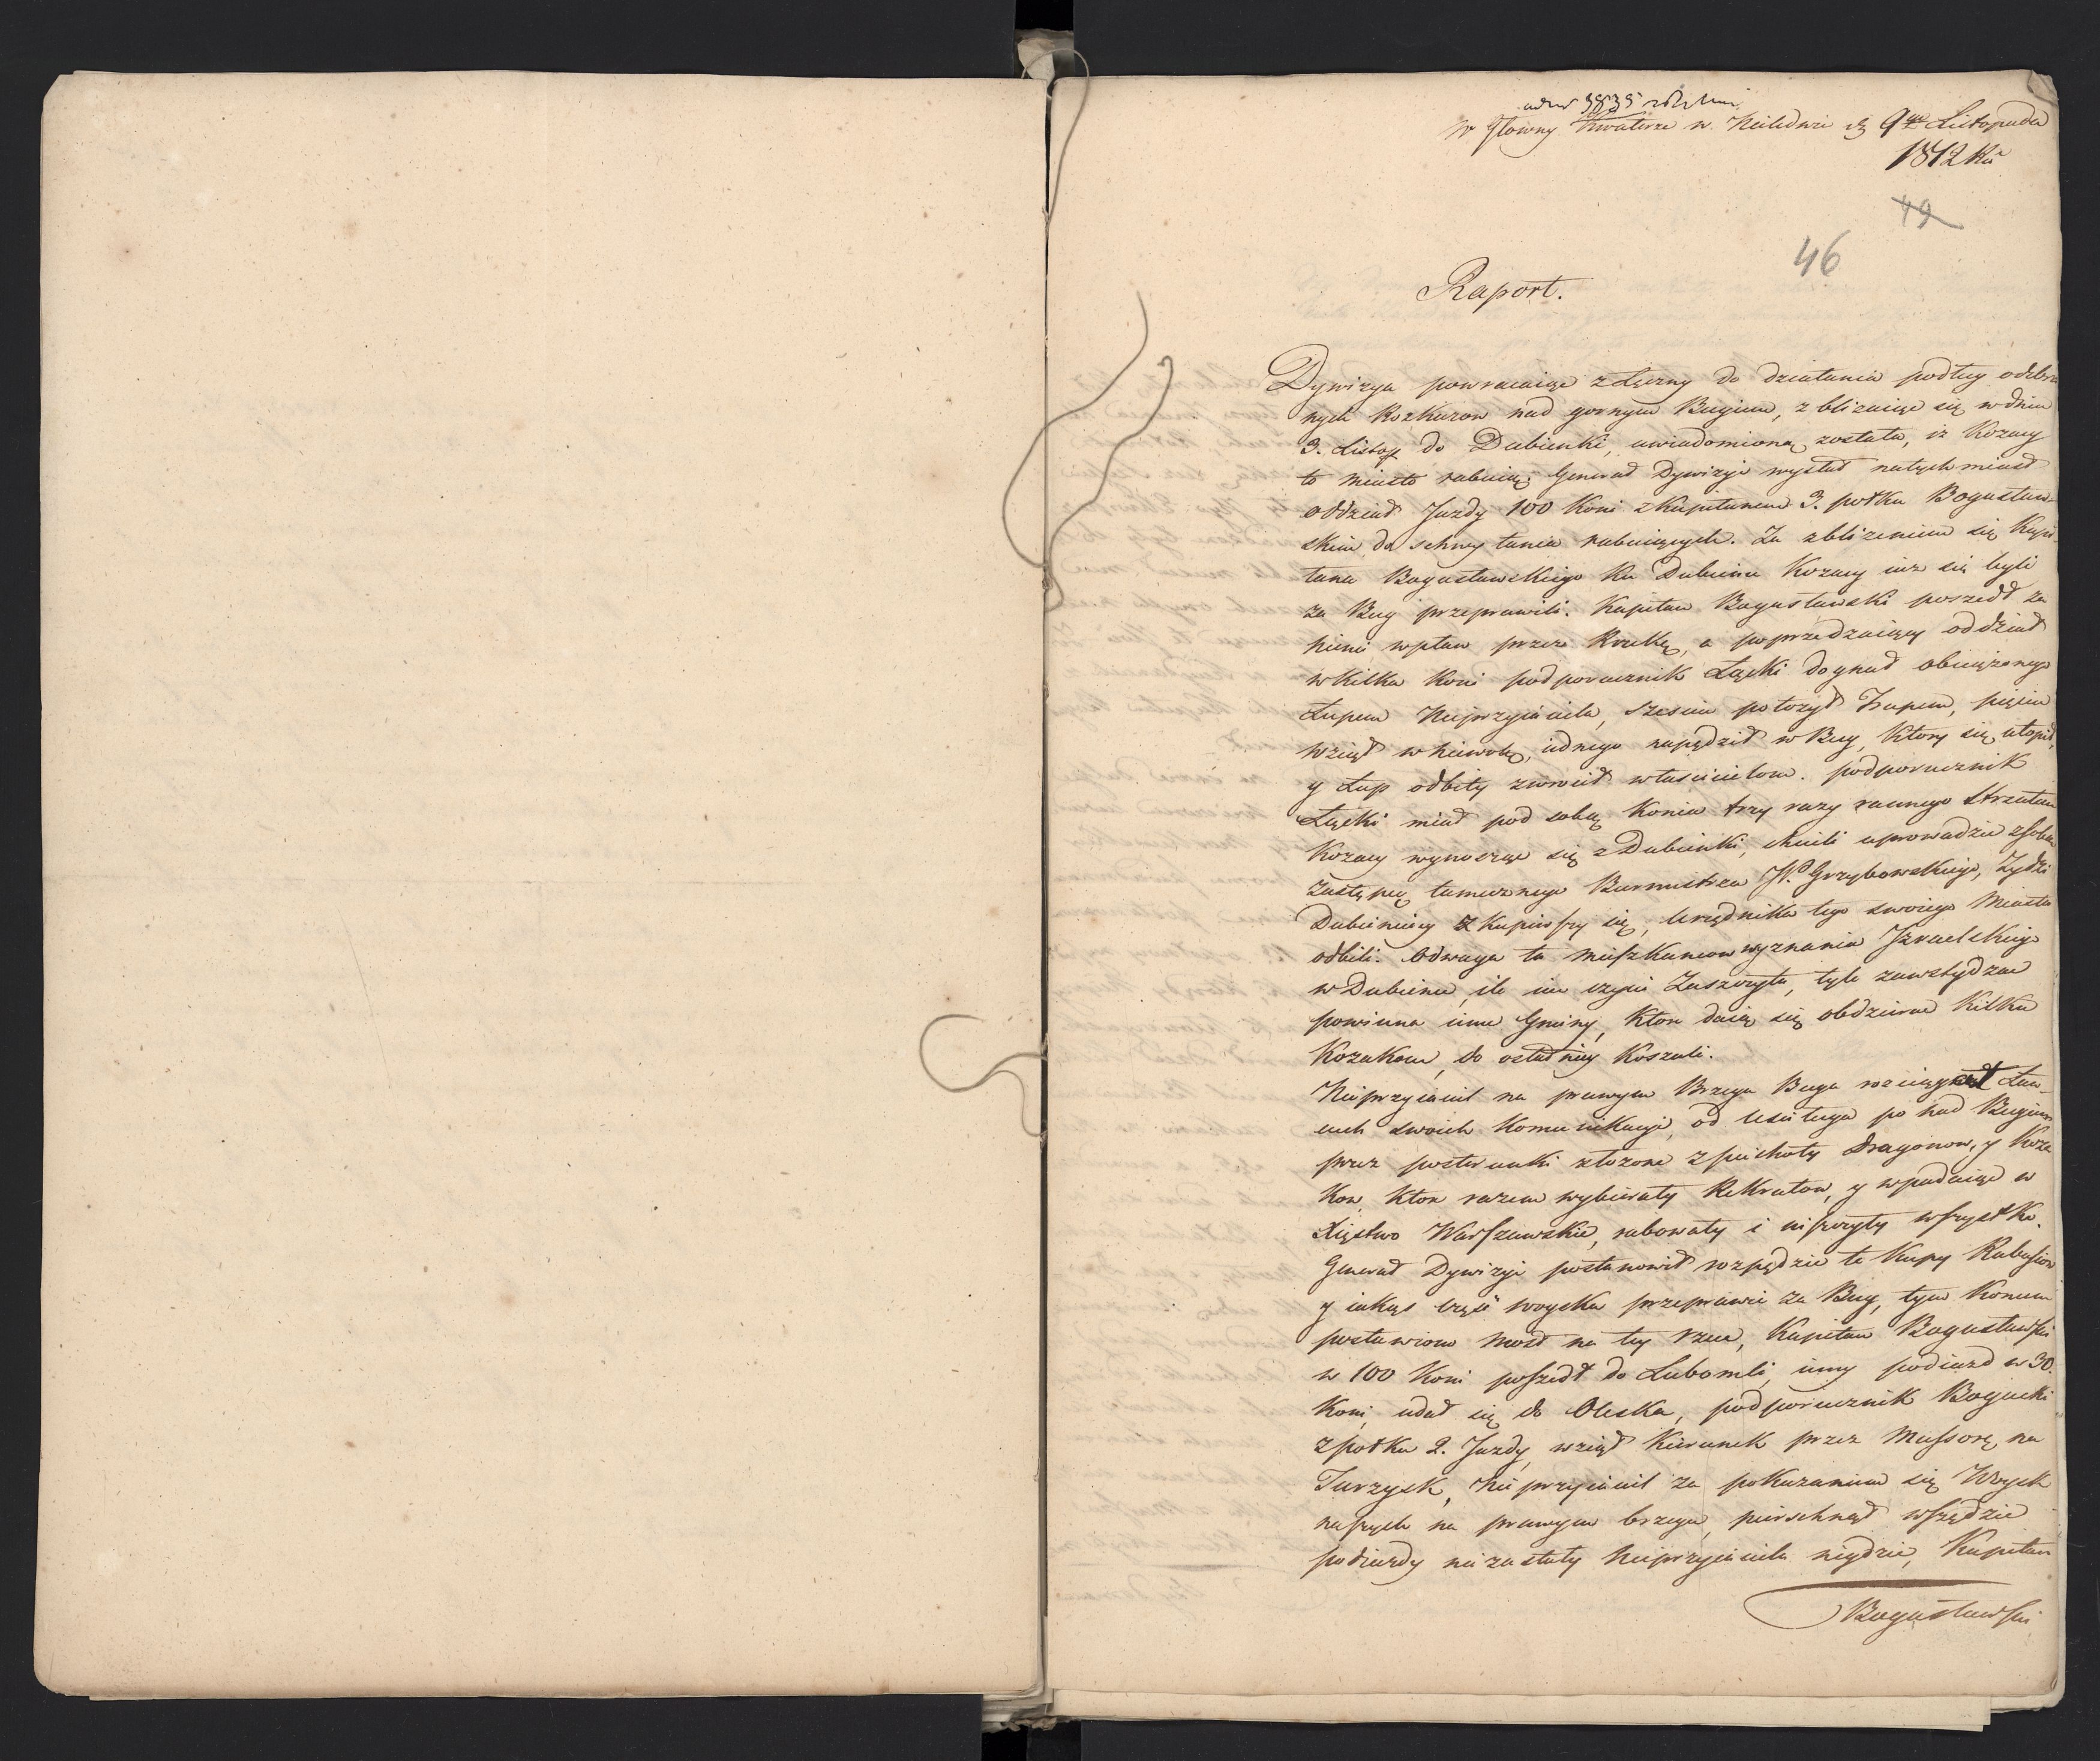 W Głowny Kwaterze w Nieledwi dnia 9go Listopada
1812 Ru
49
46
Raport.
Dywizya powracaiąc z Łęczny do działania podług odebra
nych Rozkazow nad gornym Bugiem, zbliżaiąc się w dniu
3. Listop do Dubienki, uwiadomioną została, iż Kozacy
to miasto rabuią; Generał Dywizyi wysłał natychmiast
oddział Jazdy 100 Koni z Kapitanem 3. połku Bogusław
skim do schwytania rabuiących. Za zbliżeniem się Kapi
tana Bogusławskiego Ku Dubienu Kozacy iuż się byli
za Bug przeprawili. Kapitan Bogusławski poszedł za
niemi wpław przez Rzekę, a poprzedzaiący oddział
w kilka Koni podporucznik Łącki dognał obciążonego
Łupem Nieprzyiaciela, szesciu położył Trupem, pięciu
wziął w niewolę, iednego napędził w Bug, Ktory się utopił,
y Łup odbity zwrocił właścicielom. podporucznik
Łącki miał pod sobą Konia trzy razy rannego Strzałem
Kozacy wynosząc się z Dubienki, chcieli uprowadzić z sobą
Zastępcę tamecznego Burmistrza JP. Grzybowskiego, Żydzi
Dubieniccy Zkupiwszy się, Urzędnika tego swoiego Miasta
odbili. Odwaga ta Mieszkancow wyznania Izraelskiego
w Dubience, ile im czyni Zaszczytu, tyle zawstydzać
powinna inne Gminy, Ktore daią się obdzierać Kilku
Kozakom, do ostatniey Koszuli.
Nieprzyiaciel na prawym Brzegu Bugu rozciągnął Łań-
cuch swoich Komunikacyi, od Uściługa po nad Bugiem
przez posterunki złożone z piechoty Dragonow, y Koza
kow, Ktore razem wybierały Rekrutow, y wpadaiąc w
Xięstwo Warszawskie, rabowały i niszczyły wszystko.
Generał Dywizyi postanowił rozpędzić te Kupy Rabusiow
y iakąś część woyska przeprawić za Bug, tym Koncem
postawiono most na tey rzece, Kapitan Bogusławski
w 100 Koni poszedł do Lubomli, inny podiazd w 30.
Koni, udał się do Oleska, podporucznik Bogucki
z połku 2. Jazdy, wziął Kierunek przez Massorę na
Turzysk, Nieprzyiaciel za pokazaniem się Woysk
naszych na prawym brzegu, pierschnął wszędzie
podiazdy nie zastały Nieprzyiaciela nigdzie, Kapitan
Bogusławski